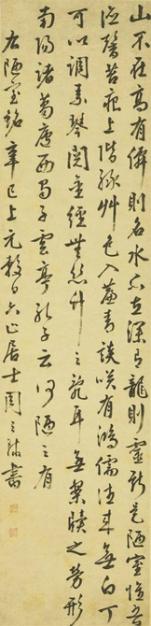 山不在高有僊則名水不在深有龍則靈斯是陋室惟吾
德馨苔痕上階綠艸色入簾青談咲有鴻儒往來無白丁
可以調素琴閱金經無絲竹之亂耳無案牘之勞形
南陽諸葛廬西蜀子雲亭孔子云何陋之有
右陋室銘辛巳上元 日 居士周之 書